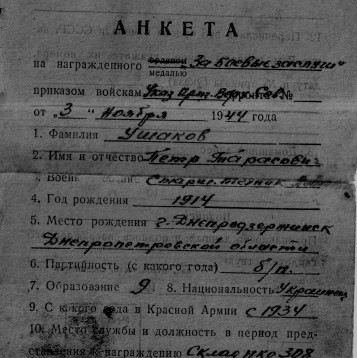 АНКЕТА
на награжденного орденом „За боевые заслуги"
медалью
приказом войскам фронта №
от „3" Ноября 1944 года
1. Фамилия Ушаков
2. Имя и отчество Петр Тарасович
3. Воен Старш. техник
4. Год рождения 1914
5. Место рождения г. Днепродзержинск
Днепропетровской области
6. Партийность (с какого года) б/п.
7. Образование 9 8. Национальность Украинец
9. С какого года в Красной Армии с 1934
10. Место службы и должность в период пред-
ставления к награждению Склад НКО 308